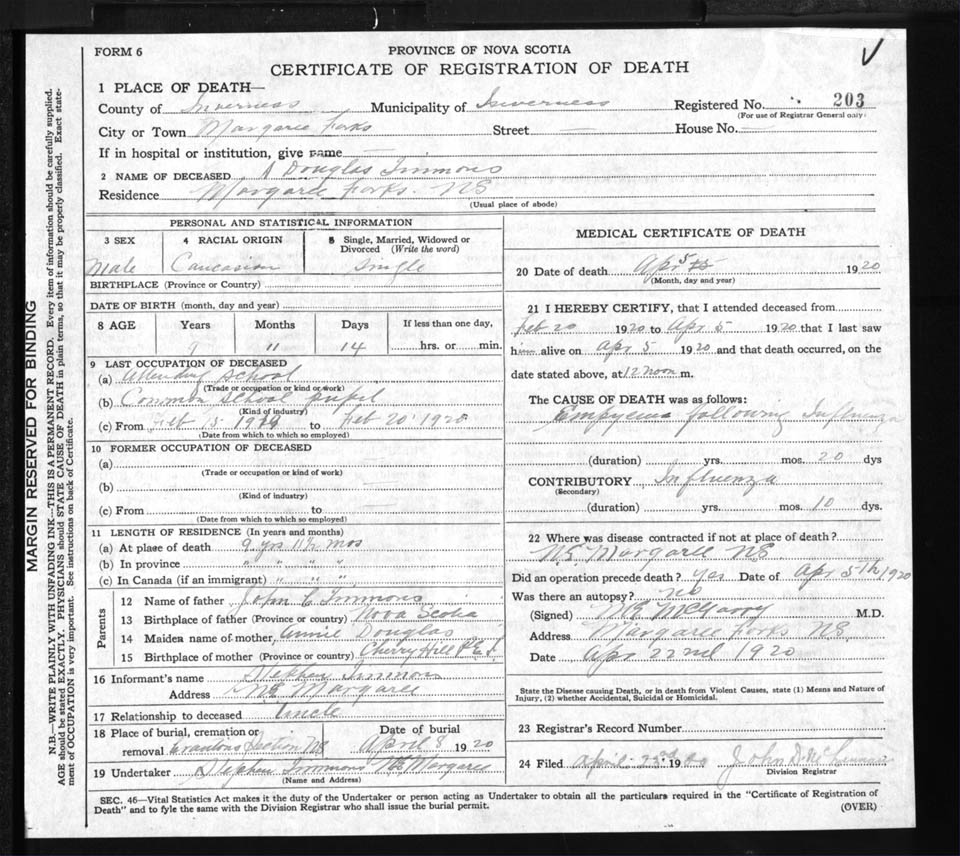 FORM 6
PROVINCE OF NOVA SCOTIA
CERTIFICATE OF REGISTRATION OF DEATH
1 PLACE OF DEATH—
County of Inverness Municipality of Inverness Registered No. 203
(For use of Registrar General only)
City or Town Margaree Forks Street — House No. —
If in hospital or institution, give name —
2 NAME OF DECEASED A Douglas Timmons
Residence Margaree Forks. NS
(Usual place of abode)
PERSONAL AND STATISTICAL INFORMATION
3 SEX 4 RACIAL ORIGIN 5 Single, Married, Widowed or Divorced (Write the word)
Male Caucasian Single
BIRTHPLACE (Province or Country)
DATE OF BIRTH (month, day and year)
8 AGE Years Months Days If less than one day,
9 11 14 hrs. or min.
9 LAST OCCUPATION OF DECEASED
(a) Attending School
(Trade or occupation or kind or work)
(b) Common School pupil
(Kind of industry)
(c) From Feb 15 19 to Feb 20 1920
(Date from which to which so employed)
10 FORMER OCCUPATION OF DECEASED
(a) —
(Trade or occupation or kind of work)
(b) —
(Kind of industry)
(c) From to
(Date from which to which so employed)
11 LENGTH OF RESIDENCE (In years and months)
(a) At place of death 9 yrs 11½ mos
(b) In province " " " "
(c) In Canada (if an immigrant) " " " "
Parents
12 Name of father John C Timmons
13 Birthplace of father (Province or country) Nova Scotia
14 Maiden name of mother Annie Douglas
15 Birthplace of mother (Province or country) Cherry Hill P.E.I.
16 Informant's name Stephen Timmons
Address NE Margaree
17 Relationship to deceased Uncle
18 Place of burial, cremation or Date of burial
removal Section NE April 8 1920
19 Undertaker Stephen Timmons NE Margaree
(Name and Address)
MEDICAL CERTIFICATE OF DEATH
20 Date of death Apr 5 1920
(Month, day and year)
21 I HEREBY CERTIFY, that I attended deceased from
Feb 20 1920 to Apr 5 1920 that I last saw
him alive on Apr 5 1920 and that death occurred, on the
date stated above, at 12 noon m.
The CAUSE OF DEATH was as follows:
Empyema following Influenza
(duration) yrs. mos. 20 dys
CONTRIBUTORY Influenza
(Secondary)
(duration) yrs. mos. 10 dys.
22 Where was disease contracted if not at place of death?
N.E. Margaree NS
Did an operation precede death? yes Date of Apr 5th 1920
Was there an autopsy? no
(Signed) McGarry M.D.
Address Margaree Forks NS
Date Apr 22nd 1920
State the Disease causing Death, or in death from Violent Causes, state (1) Means and Nature of
Injury, (2) whether Accidental, Suicidal or Homicidal.
23 Registrar's Record Number
24 Filed April 23rd 19 John D. Mc
Division Registrar
SEC. 46—Vital Statistics Act makes it the duty of the Undertaker or person acting as Undertaker to obtain all the particulars required in the "Certificate of Registration of
Death" and to fyle the same with the Division Registrar who shall issue the burial permit.
(OVER)
MARGIN RESERVED FOR BINDING
N.B.—WRITE PLAINLY WITH UNFADING INK—THIS IS A PERMANENT RECORD. Every item of information should be carefully supplied.
AGE should be stated EXACTLY. PHYSICIANS should STATE CAUSE OF DEATH in plain terms, so that it may be properly classified. Exact state-
ment of OCCUPATION is very important. See instructions on back of Certificate.